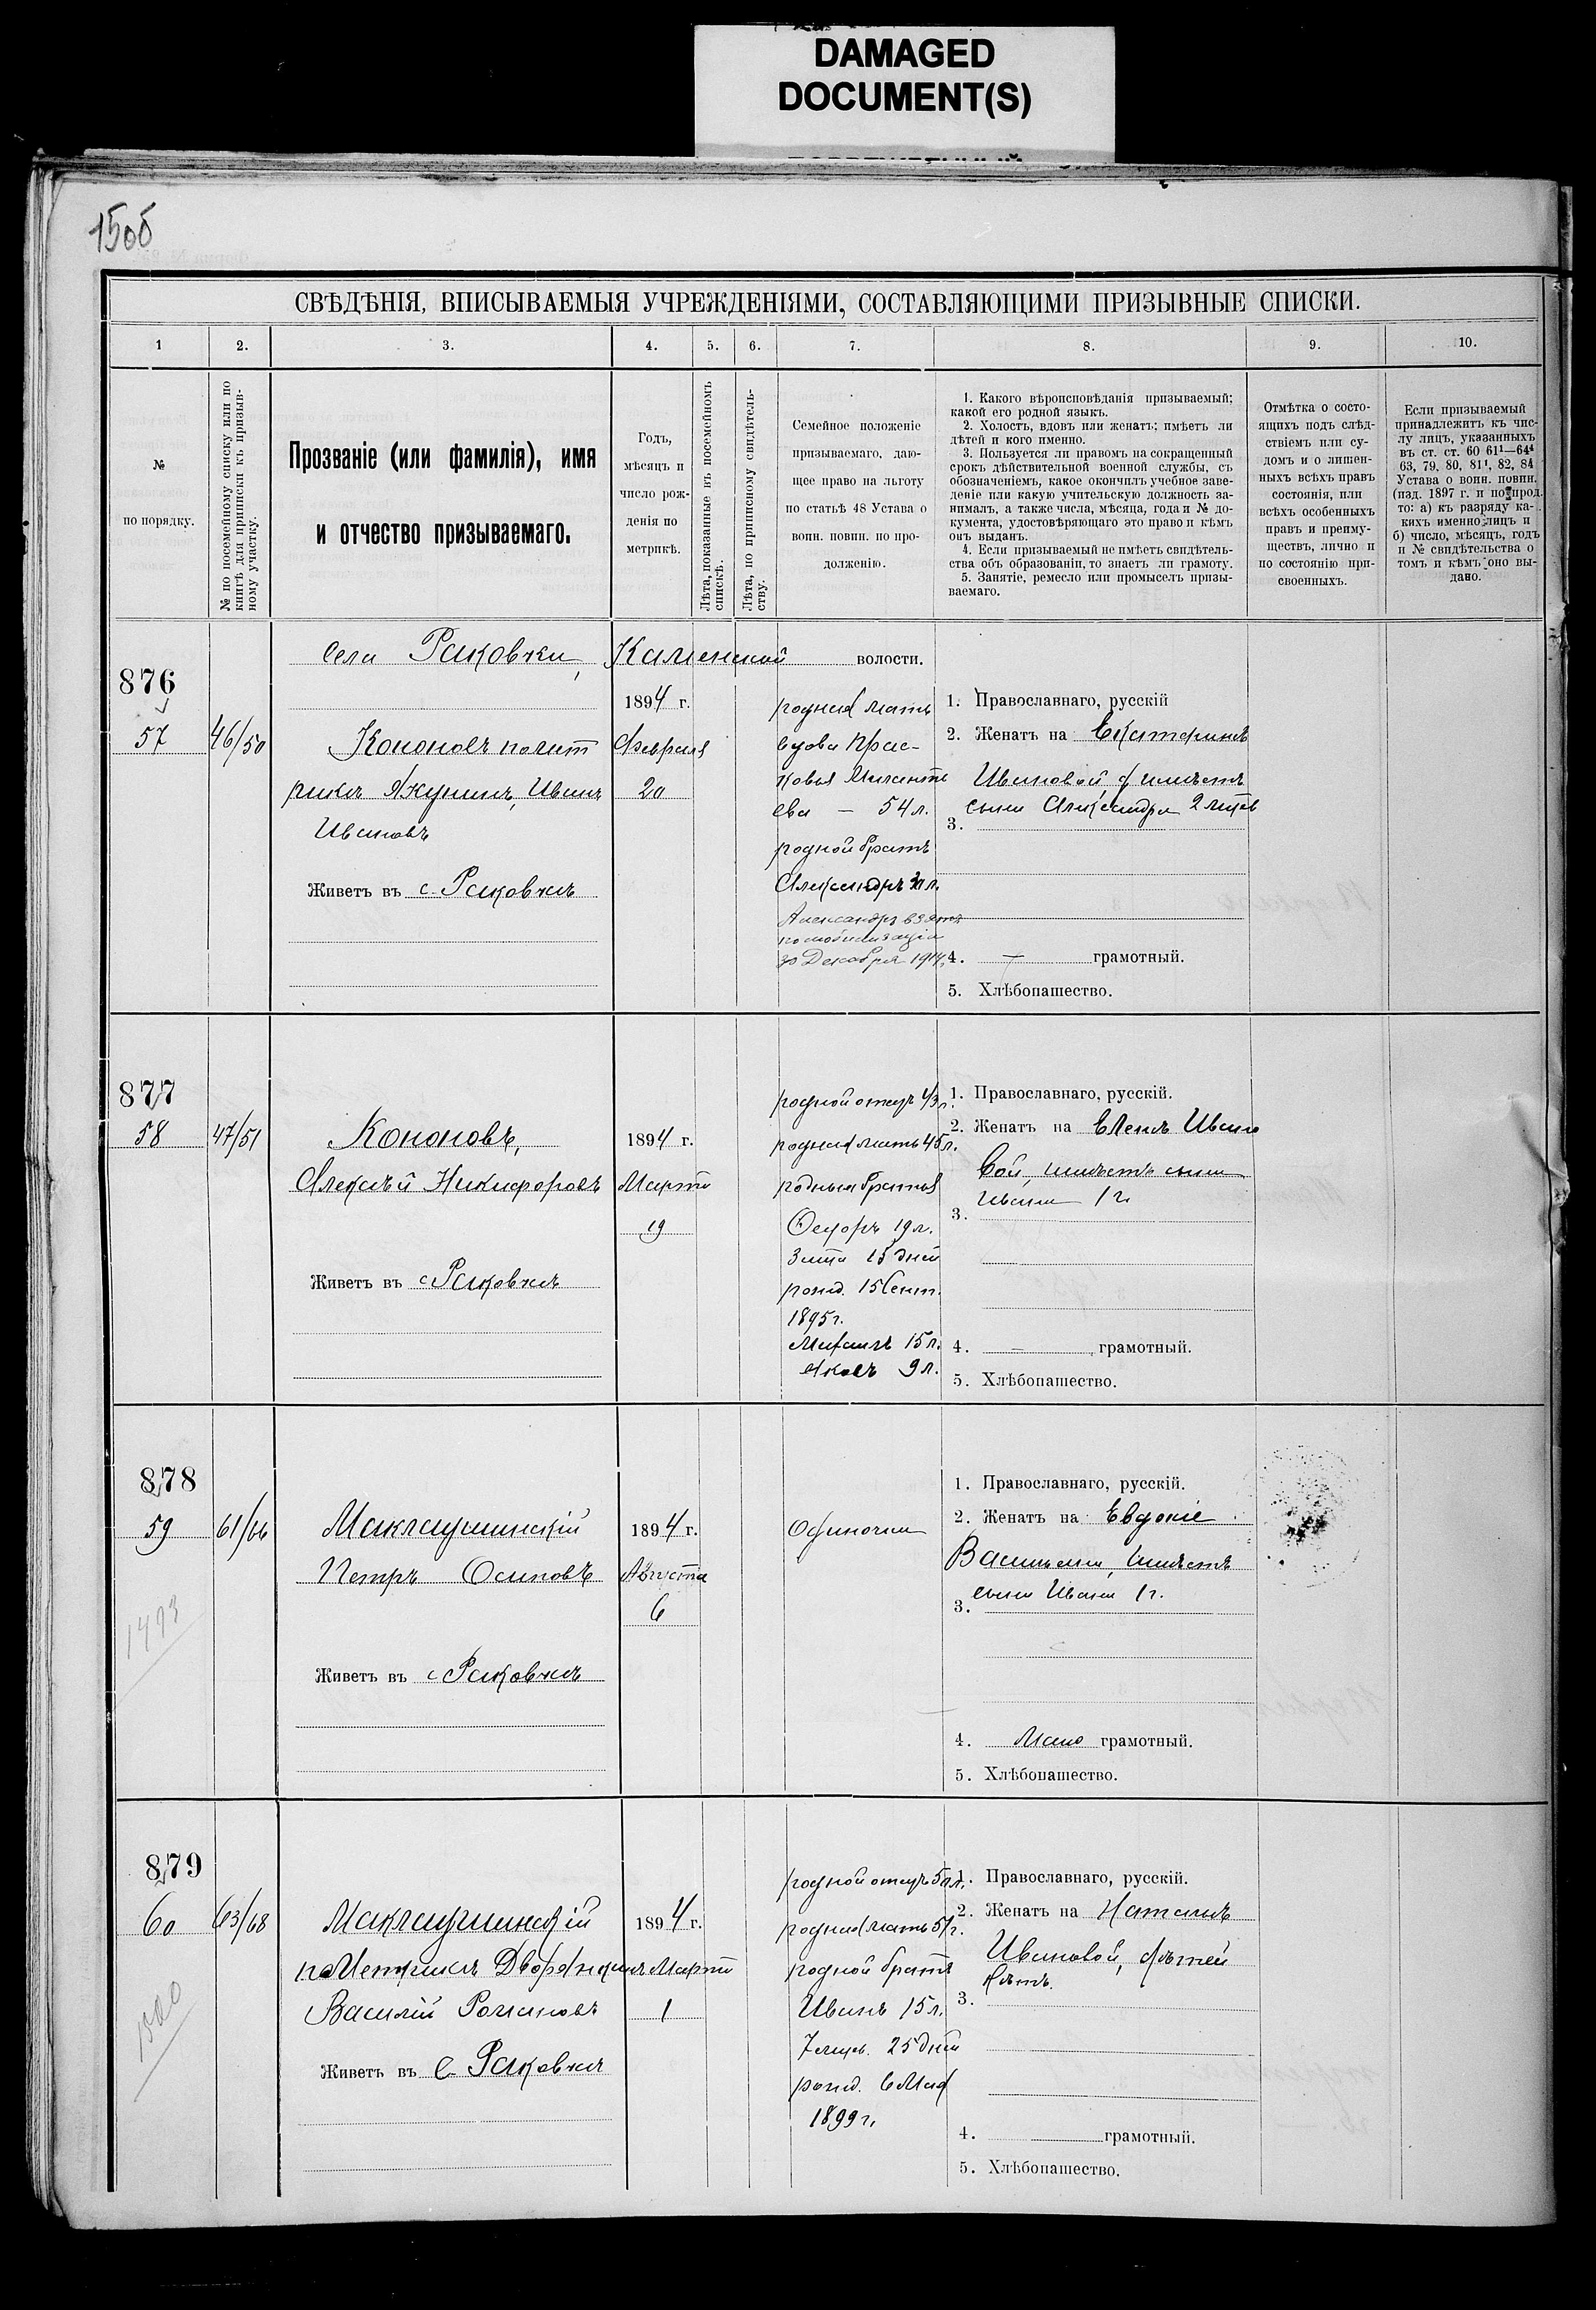 DAMAGED
DOCUMENT(S)
150б
СВѢДѢНІЯ, ВПИСЫВАЕМЫЯ УЧРЕЖДЕНІЯМИ, СОСТАВЛЯЮЩИМИ ПРИЗЫВНЫЕ СПИСКИ.
1 2. 3. 4. 5. 6. 7. 8. 9. 10.
№
по порядку.
№ по посемейному списку или по
книгѣ для приписки къ призыв-
ному участку.
Прозваніе (или фамилія), имя
и отчество призываемаго.
Годъ,
мѣсяцъ и
число рож-
денія по
метрикѣ.
Лѣта, показанные въ посемейномъ
спискѣ.
Лѣта, по приписному свидѣтель-
ству.
Семейное положеніе
призываемаго, даю-
щее право на льготу
по статьѣ 48 Устава о
воин. повин. по про-
долженію.
1. Какого вѣроисповѣданія призываемый;
какой его родной языкъ.
2. Холостъ, вдовъ или женатъ; имѣетъ ли
дѣтей и кого именно.
3. Пользуется ли правомъ на сокращенный
срокъ дѣйствительной военной службы, съ
обозначеніемъ, какое окончилъ учебное заве-
деніе или какую учительскую должность за-
нималъ, а также числа, мѣсяца, года и № до-
кумента, удостовѣряющаго это право и кѣмъ
онъ выданъ.
4. Если призываемый не имѣетъ свидѣтель-
ства объ образованіи, то знаетъ ли грамоту.
5. Занятіе, ремесло или промыселъ призы-
ваемаго.
Отмѣтка о состо-
ящихъ подъ слѣд-
ствіемъ или су-
домъ и о лишен-
ныхъ всѣхъ правъ
состоянія, или
всѣхъ особенныхъ
правъ и преиму-
ществъ, лично и
по состоянію при-
своенныхъ.
Если призываемый
принадлежитъ къ чис-
лу лицъ, указанныхъ
въ ст. ст. 60 61¹—64⁴
63, 79, 80, 81¹, 82, 84
Устава о воин. повин.
(изд. 1897 г. и по прод.
то: а) къ разряду ка-
кихъ именно лицъ и
б) число, мѣсяцъ, годъ
и № свидѣтельства о
томъ и кѣмъ оно вы-
дано.
Села Раковки, Каменской волости.
876
57
46/50
Кононовъ по мет
рикѣ Якунинъ, Иванъ
Ивановъ
Живетъ въ с. Раковкѣ
1894 г.
Февраля
20
родная мать
вдова Прас-
ковья
ева — 54 л.
родной братъ
Александръ л.
Александръ взятъ
по мобилизаціи
30 Декабря 1914.
1. Православнаго, русскій
2. Женатъ на Екатеринѣ
Ивановой, имѣетъ
сына Александра 2 лѣтъ
3.
4. — грамотный.
5. Хлѣбопашество.
877
58
47/51
Кононовъ,
Алексѣй Никифоровъ
Живетъ въ с Раковкѣ
1894 г.
Марта
19
родной отецъ 43 л.
родная мать 45 л.
родные братья
Ѳедоръ 19 л.
15 дней
рожд. 15 Сент.
1895 г.
Михаилъ 15 л.
Яковъ 9 л.
1. Православнаго, русскій.
2. Женатъ на Еленѣ Ивано
вой, имѣетъ сына
Ивана 1 г.
3.
4. — грамотный.
5. Хлѣбопашество.
878
59
1493
61/66
Маклаушинскій
Петръ Осиповъ
Живетъ въ с Раковкѣ
1894 г.
Августа
6
Одиночка
1. Православнаго, русскій.
2. Женатъ на Евдокіе
Васильевна, имѣетъ
сына Ивана 1 г.
3.
4. Мало грамотный.
5. Хлѣбопашество.
879
60
1500
63/68
Маклаушинскій
по Метрикѣ Дворянкинъ
Василій Романовъ
Живетъ въ с. Раковкѣ
1894 г.
Марта
1
родной отецъ 50 л.
родная мать 51 г.
родной братъ
Иванъ 15 л.
7 мѣсяц. 25 дней
рожд. 6 Мая
1899 г.
1. Православнаго, русскій.
2. Женатъ на Натальѣ
Ивановой, дѣтей
нѣтъ.
3.
4. грамотный.
5. Хлѣбопашество.